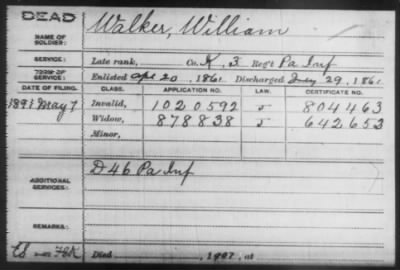 DEAD
NAME OF SOLDIER: Walker, William
SERVICE: Late rank, Co. K. 3 Reg't Pa Inf
TERM OF SERVICE: Enlisted Apl 20, 1861 Discharged July 29, 1861
DATE OF FILING. CLASS. APPLICATION NO. LAW. CERTIFICATE NO.
1891 May 7 Invalid, 1020592 804463
Widow, 878838 642653
Minor,
ADDITIONAL SERVICES: D 46 Pa Inf
REMARKS:
Died , at